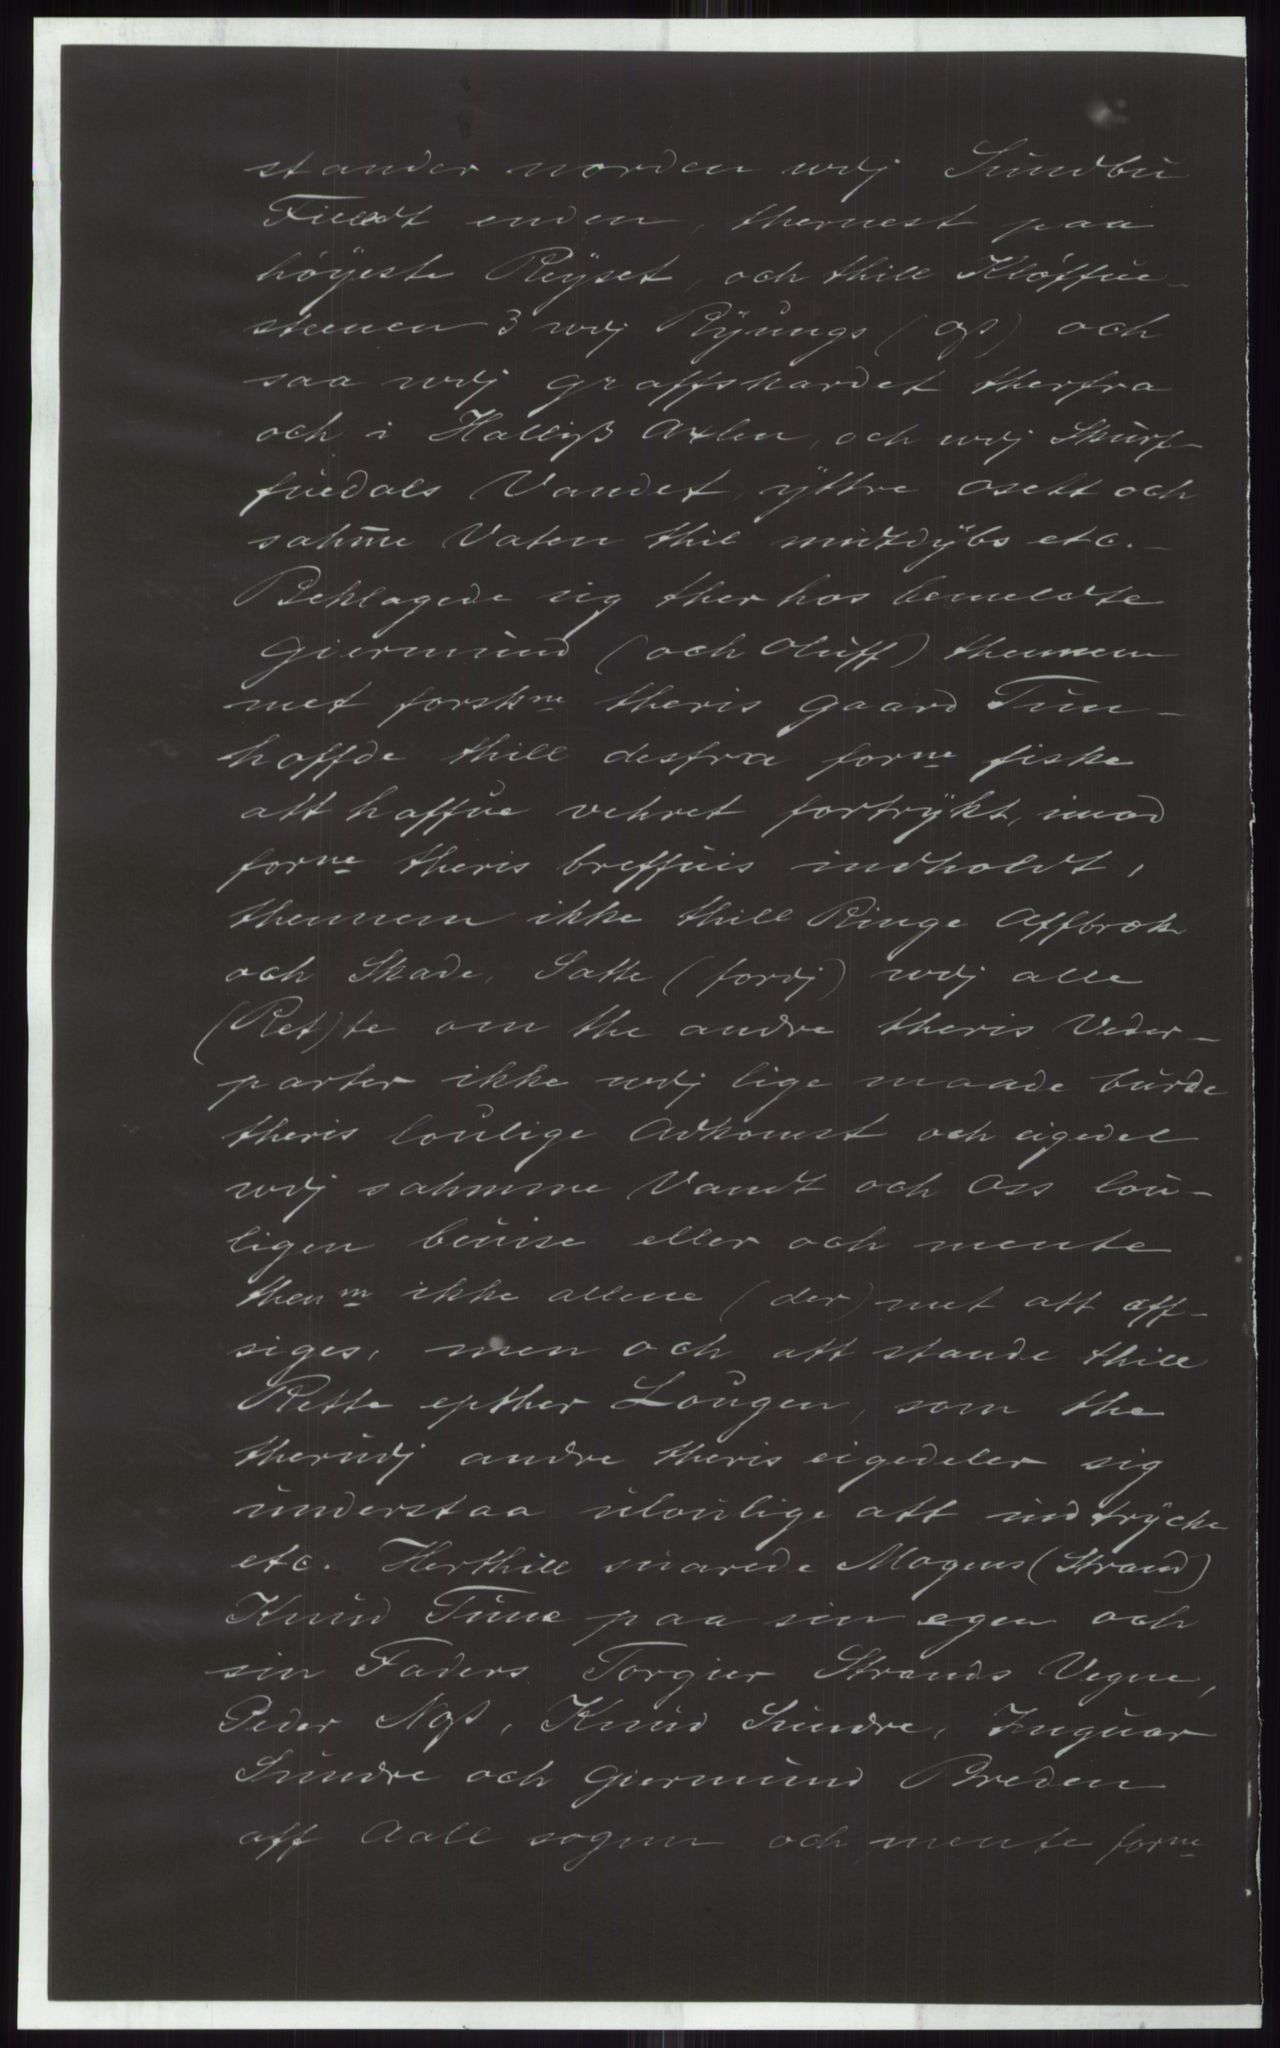 stander norden udj Sundbu
Fieldt enden, thernest paa
höÿeste Reÿset, och thill Klöffue-
steenen 3 udj Rÿŭngs (os) och
saa udj graffskardet therfra
och i Hallisß Axlen, och udj Skŭrf-
fuedals Vandet, ÿttre osett och
sahm̄e Vaten thil midtdÿbs etc.-
Beklagede sig ther hos bemeldte
Giermŭnd (och Oluff) thennem
met forskne theris gaard Tŭn-
hoffde thill desfra forne fiske
att haffŭe vehret fortrÿkt, imod
forne theris breffŭis indholdt,
thennem ikke thill Ringe Affbræk
och Skade, Satte (fordj) udj alle
(Ret)te om the andre theris Veder-
parter ikke udj lige maade bŭrde
theris loŭlige Adkomst och eigedel
udj sahmme Vandt och Oss loŭ-
ligen beŭise eller och mente
thenm ikke allene (der) met att aff-
siges, men och att stande thill
Rette epther Loŭgen, som the
therŭdj andre theris eigedeler sig
ŭnderstaa ŭloŭlige att indtrÿcke
etc. Herthill suarede Mogens (Strand)
Knŭd Tŭne paa sin egen och
sin Faders Torgier Strands Vegne,
Peder Noß, Knŭd Sŭndre, Ingŭar
Sŭndre och Giermŭnd Breden
aff Aall sogen och mente forne